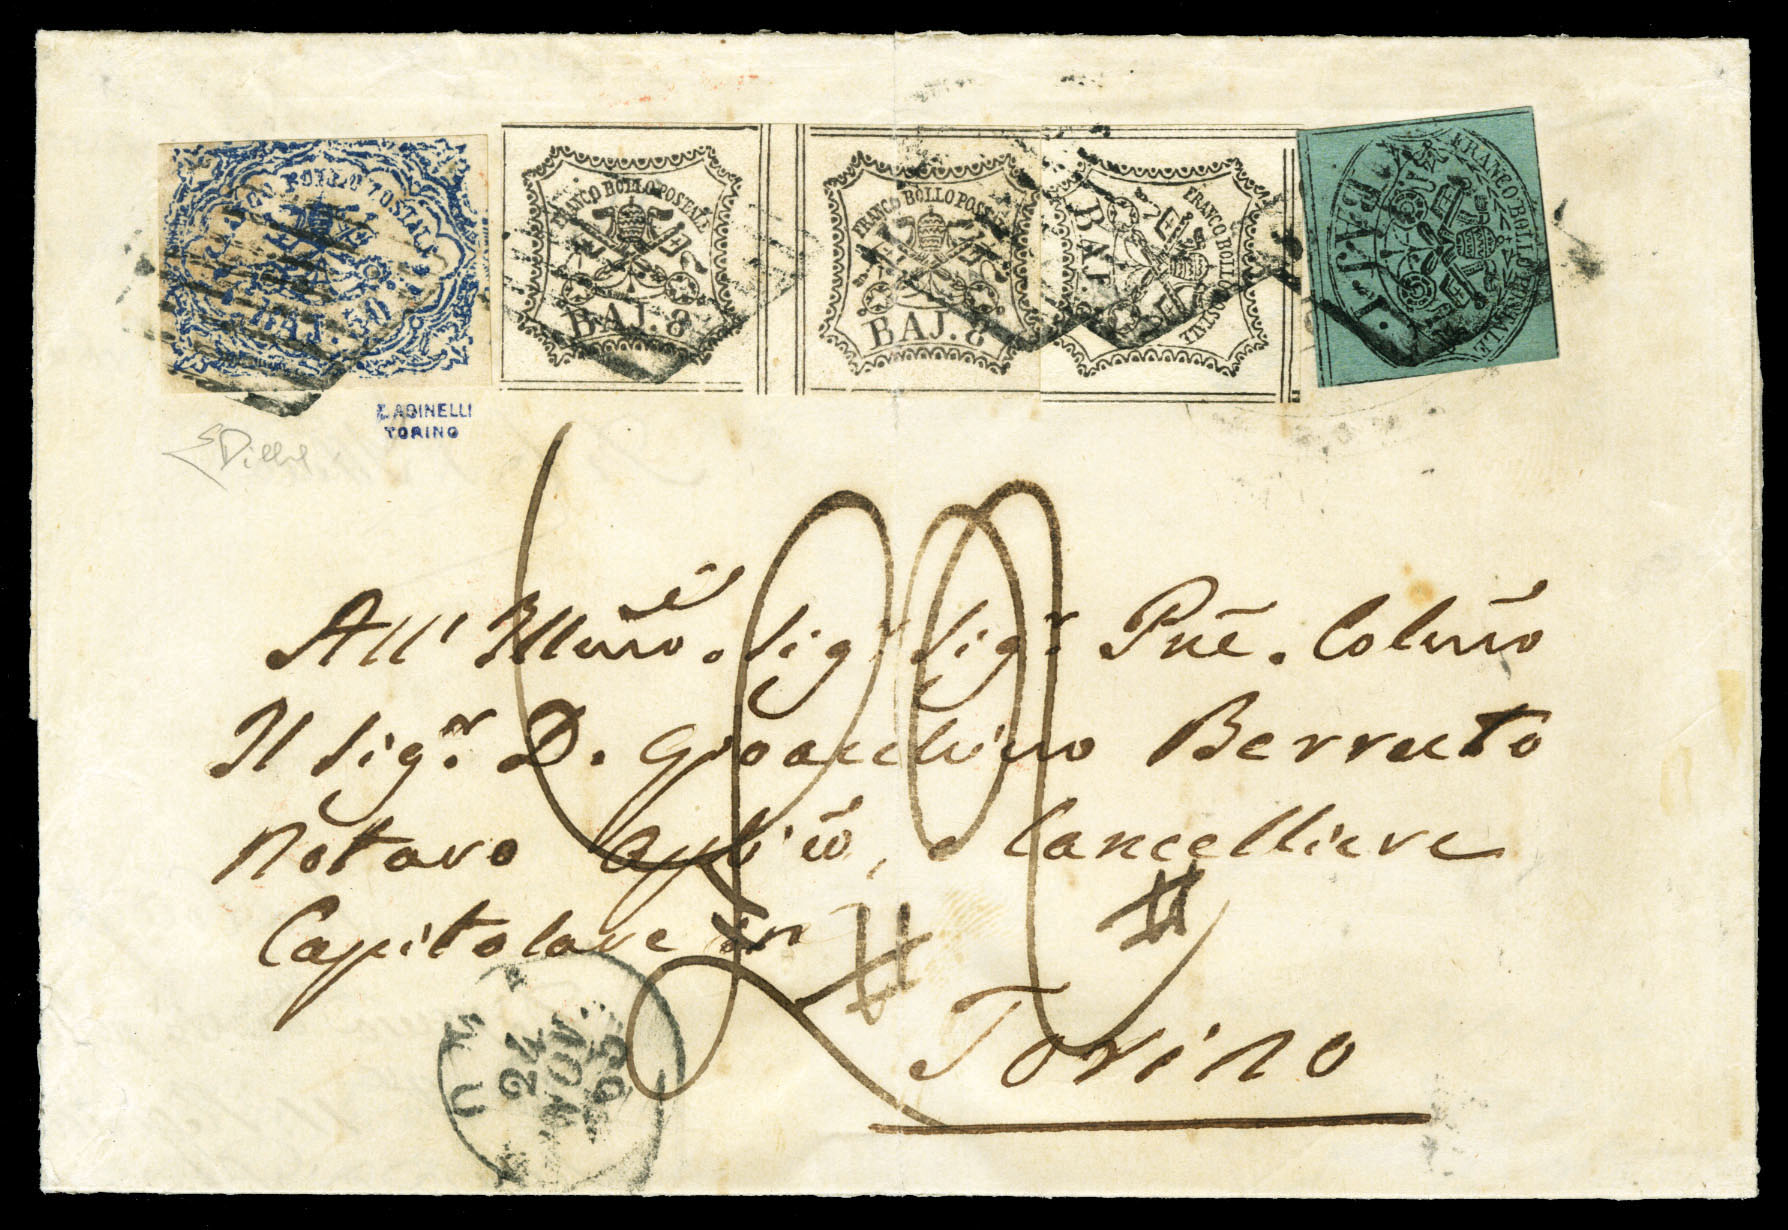 FRANCO BOLLO POSTALE
BAJ. 50
FRANCO BOLLO POSTALE
BAJ. 8
FRANCO BOLLO POSTALE
BAJ. 8
FRANCO BOLLO POSTALE
BAJ
FRANCO BOLLO POSTALE
1. BAJ.
ZAGINELLI
TORINO
All' Illmo. Sigr Sigr Pne. Colmo
Il Sigr. D. Gioacchino Berruto
Notaro Aplico, e Cancelliere
Capitolare in
Torino
24
NOV.
65